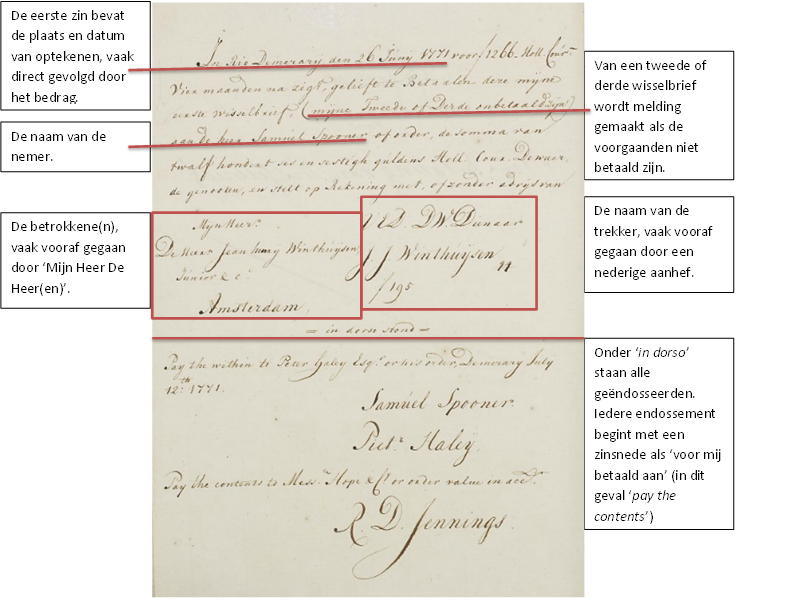 De eerste zin bevat
de plaats en datum
van optekenen, vaak
direct gevolgd door
het bedrag.
De naam van de
nemer.
De betrokkene(n),
vaak vooraf gegaan
door ‘Mijn Heer De
Heer(en)’.
In Rio Demerary den 26 Juny 1771 voor ƒ1266 Holl. Cour.
Vier maanden na zigt, gelieft te Betaalen deze mijne
eerste wisselbrief, (mijne Tweede of Derde onbetaald zijn)
aan de heer Samuel Spooner of order, de somma van
twalf hondert ses en sestigh guldens Holl. Cour. De waer,
de genooten, en stelt op Rekening met, of zonder advys van
Mijn Heer
De Heer Jean Winthuysen,
Junior & C.
Amsterdam,
U E D. DW. Dienaar
J J Winthuysen
ƒ195
= in dorso stond =
Pay the within to Peter Haley Esqr. or his order, Demerary July
12th 1771.
Samuel Spooner.
Pietr Haley.
Pay the contents to Messrs. Hope & Co or order value in acct.
R. D. Jennings.
Van een tweede of
derde wisselbrief
wordt melding
gemaakt als de
voorgaanden niet
betaald zijn.
De naam van de
trekker, vaak vooraf
gegaan door een
nederige aanhef.
Onder ‘in dorso’
staan alle
geëndosseerden.
Iedere endossement
begint met een
zinsnede als ‘voor mij
betaald aan’ (in dit
geval ‘pay the
contents’)